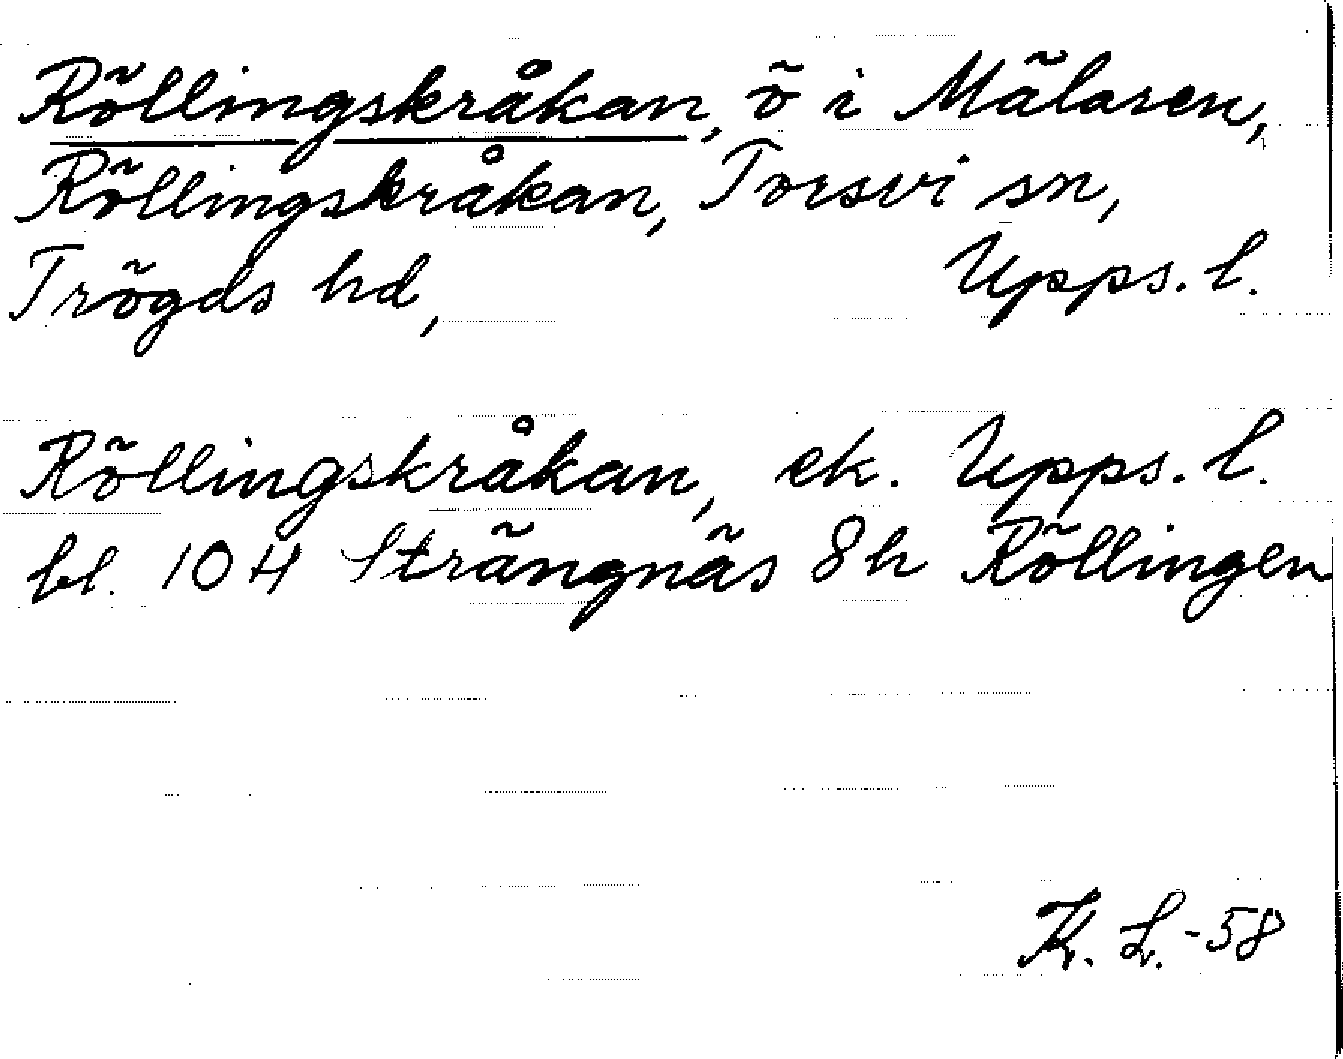 Röllingskråkan, ö i Mälaren,
Röllingskråkan, Torsvi sn,
Trögds hd, Upps. l.
Röllingskråkan, ek. Upps. l.
bl. 10 H Strängnäs 8h Röllingen
K. L. -58